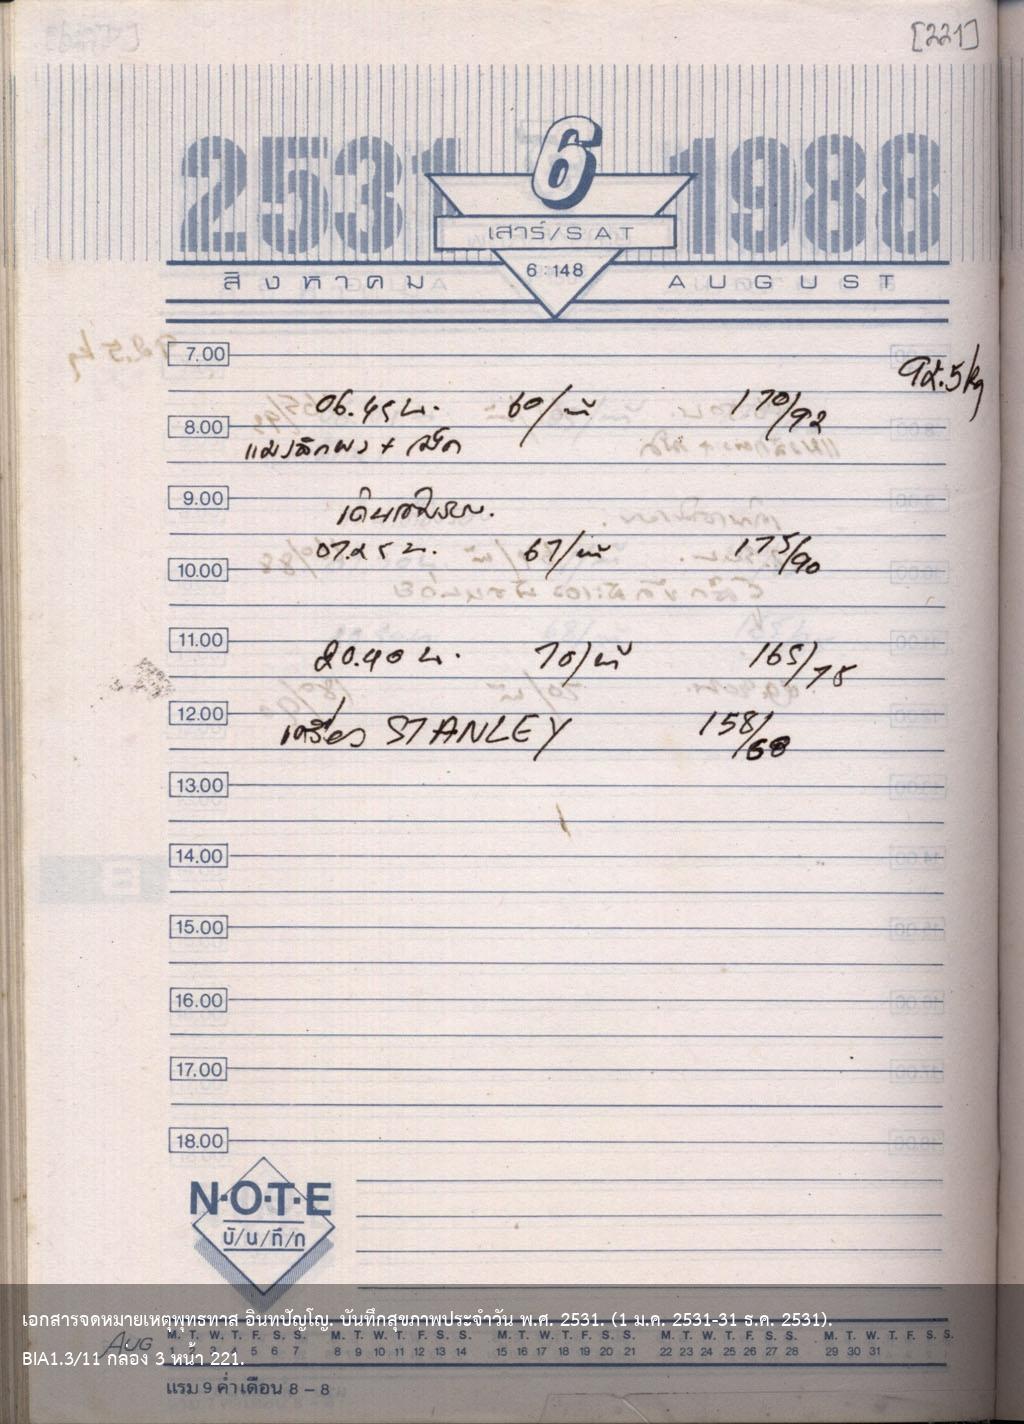 [221]
2531
6
1988
เสาร์/SAT
6 : 148
สิงหาคม
AUGUST
7.00
5 kg
06.45 น. 60/นาที 170/92
8.00
แมงลักผง +
9.00
10.00
น. 67/นาที 175/90
11.00
20.40 น. 70/นาที 165/75
12.00
เครื่อง STANLEY 158/68
13.00
14.00
15.00
16.00
17.00
18.00
N·O·T·E
บั/น/ทึ/ก
เอกสารจดหมายเหตุพุทธทาส อินทปัญโญ. บันทึกสุขภาพประจำวัน พ.ศ. 2531. (1 ม.ค. 2531-31 ธ.ค. 2531).
AUG
M. T. W. T. F. S. S. M. T. W. T. F. S. S. M. T. W. T. F. S. S. M. T. W. T. F. S. S. M. T. W. T. F. S. S.
1 2 3 4 5 6 7 8 9 10 11 12 13 14 15 16 17 18 19 20 21 22 23 24 25 26 27 28 29 30 31
BIA1.3/11 กล่อง 3 หน้า 221.
แรม 9 ค่ำ เดือน 8 – 8